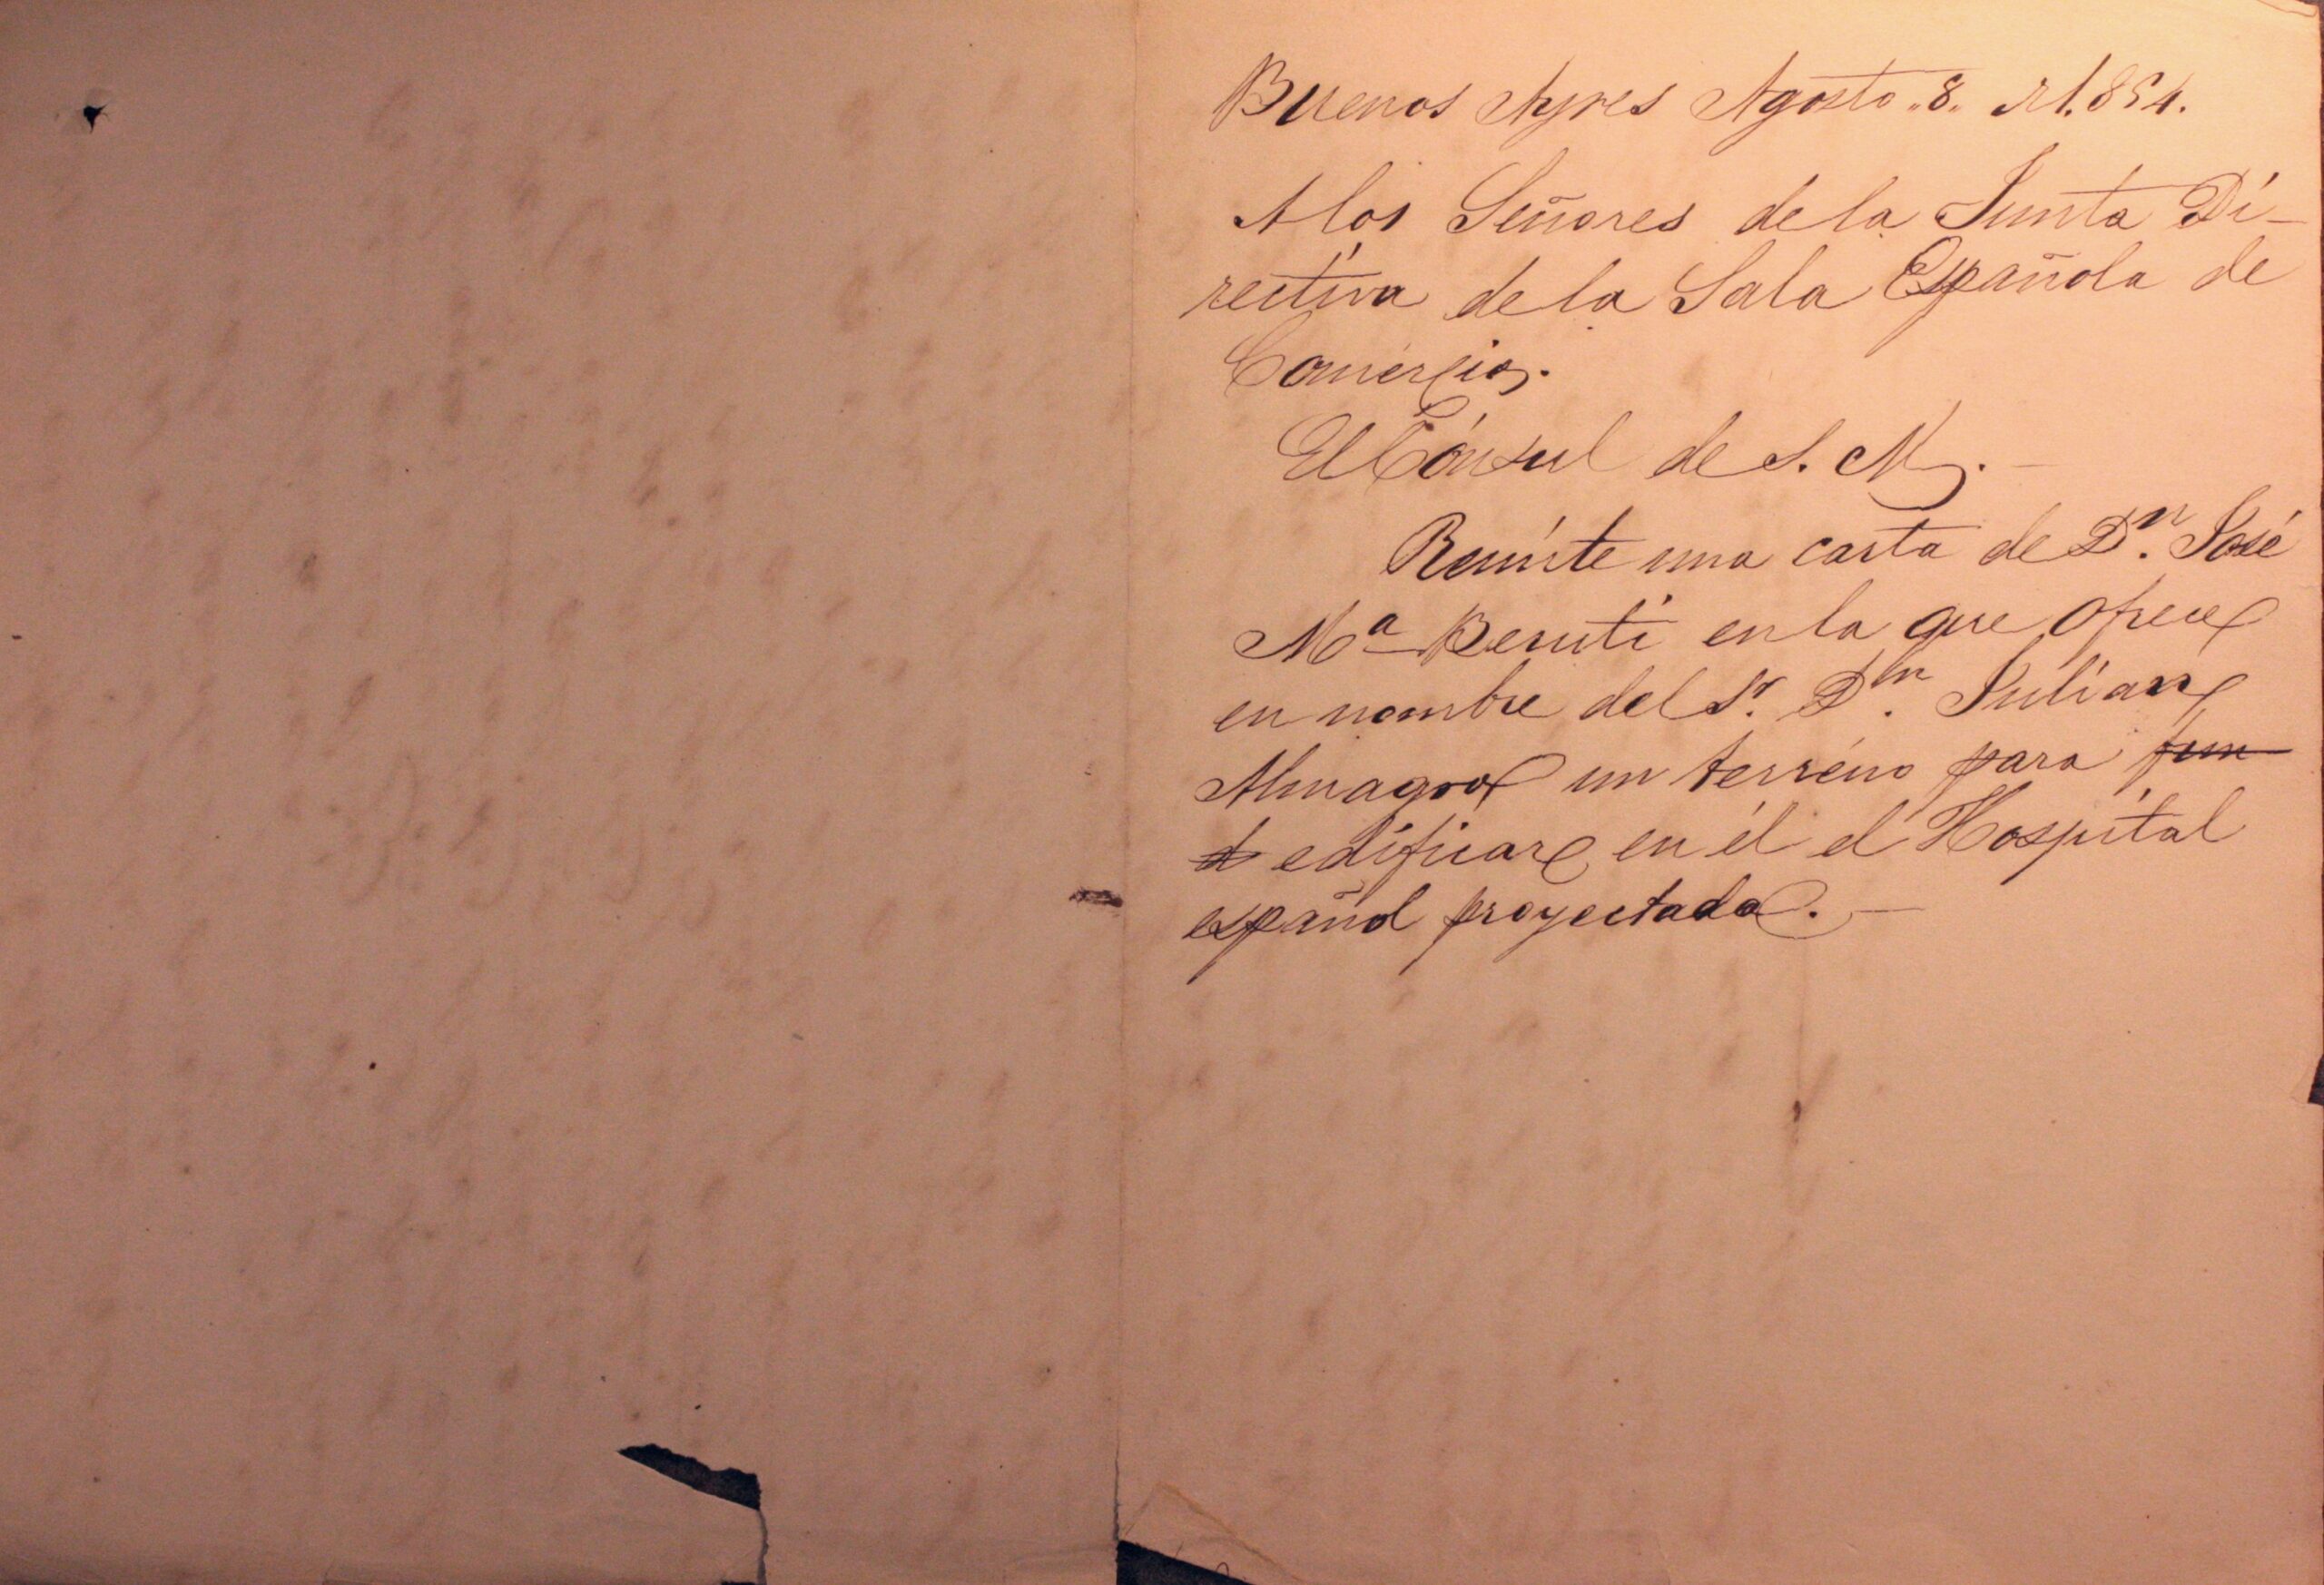 Buenos Ayres Agosto "8" d 1.854.
A los Señores de la Junta Di-
rectiva de la Sala Española de
Comercio.
El Cónsul de S. M. -
Remite una carta de Dn. José
Ma Beruti en la que ofrece
en nombre del Sr. Dn. Julian
Almagro un terreno para fun
d edificar en él el Hospital
español proyectado. -